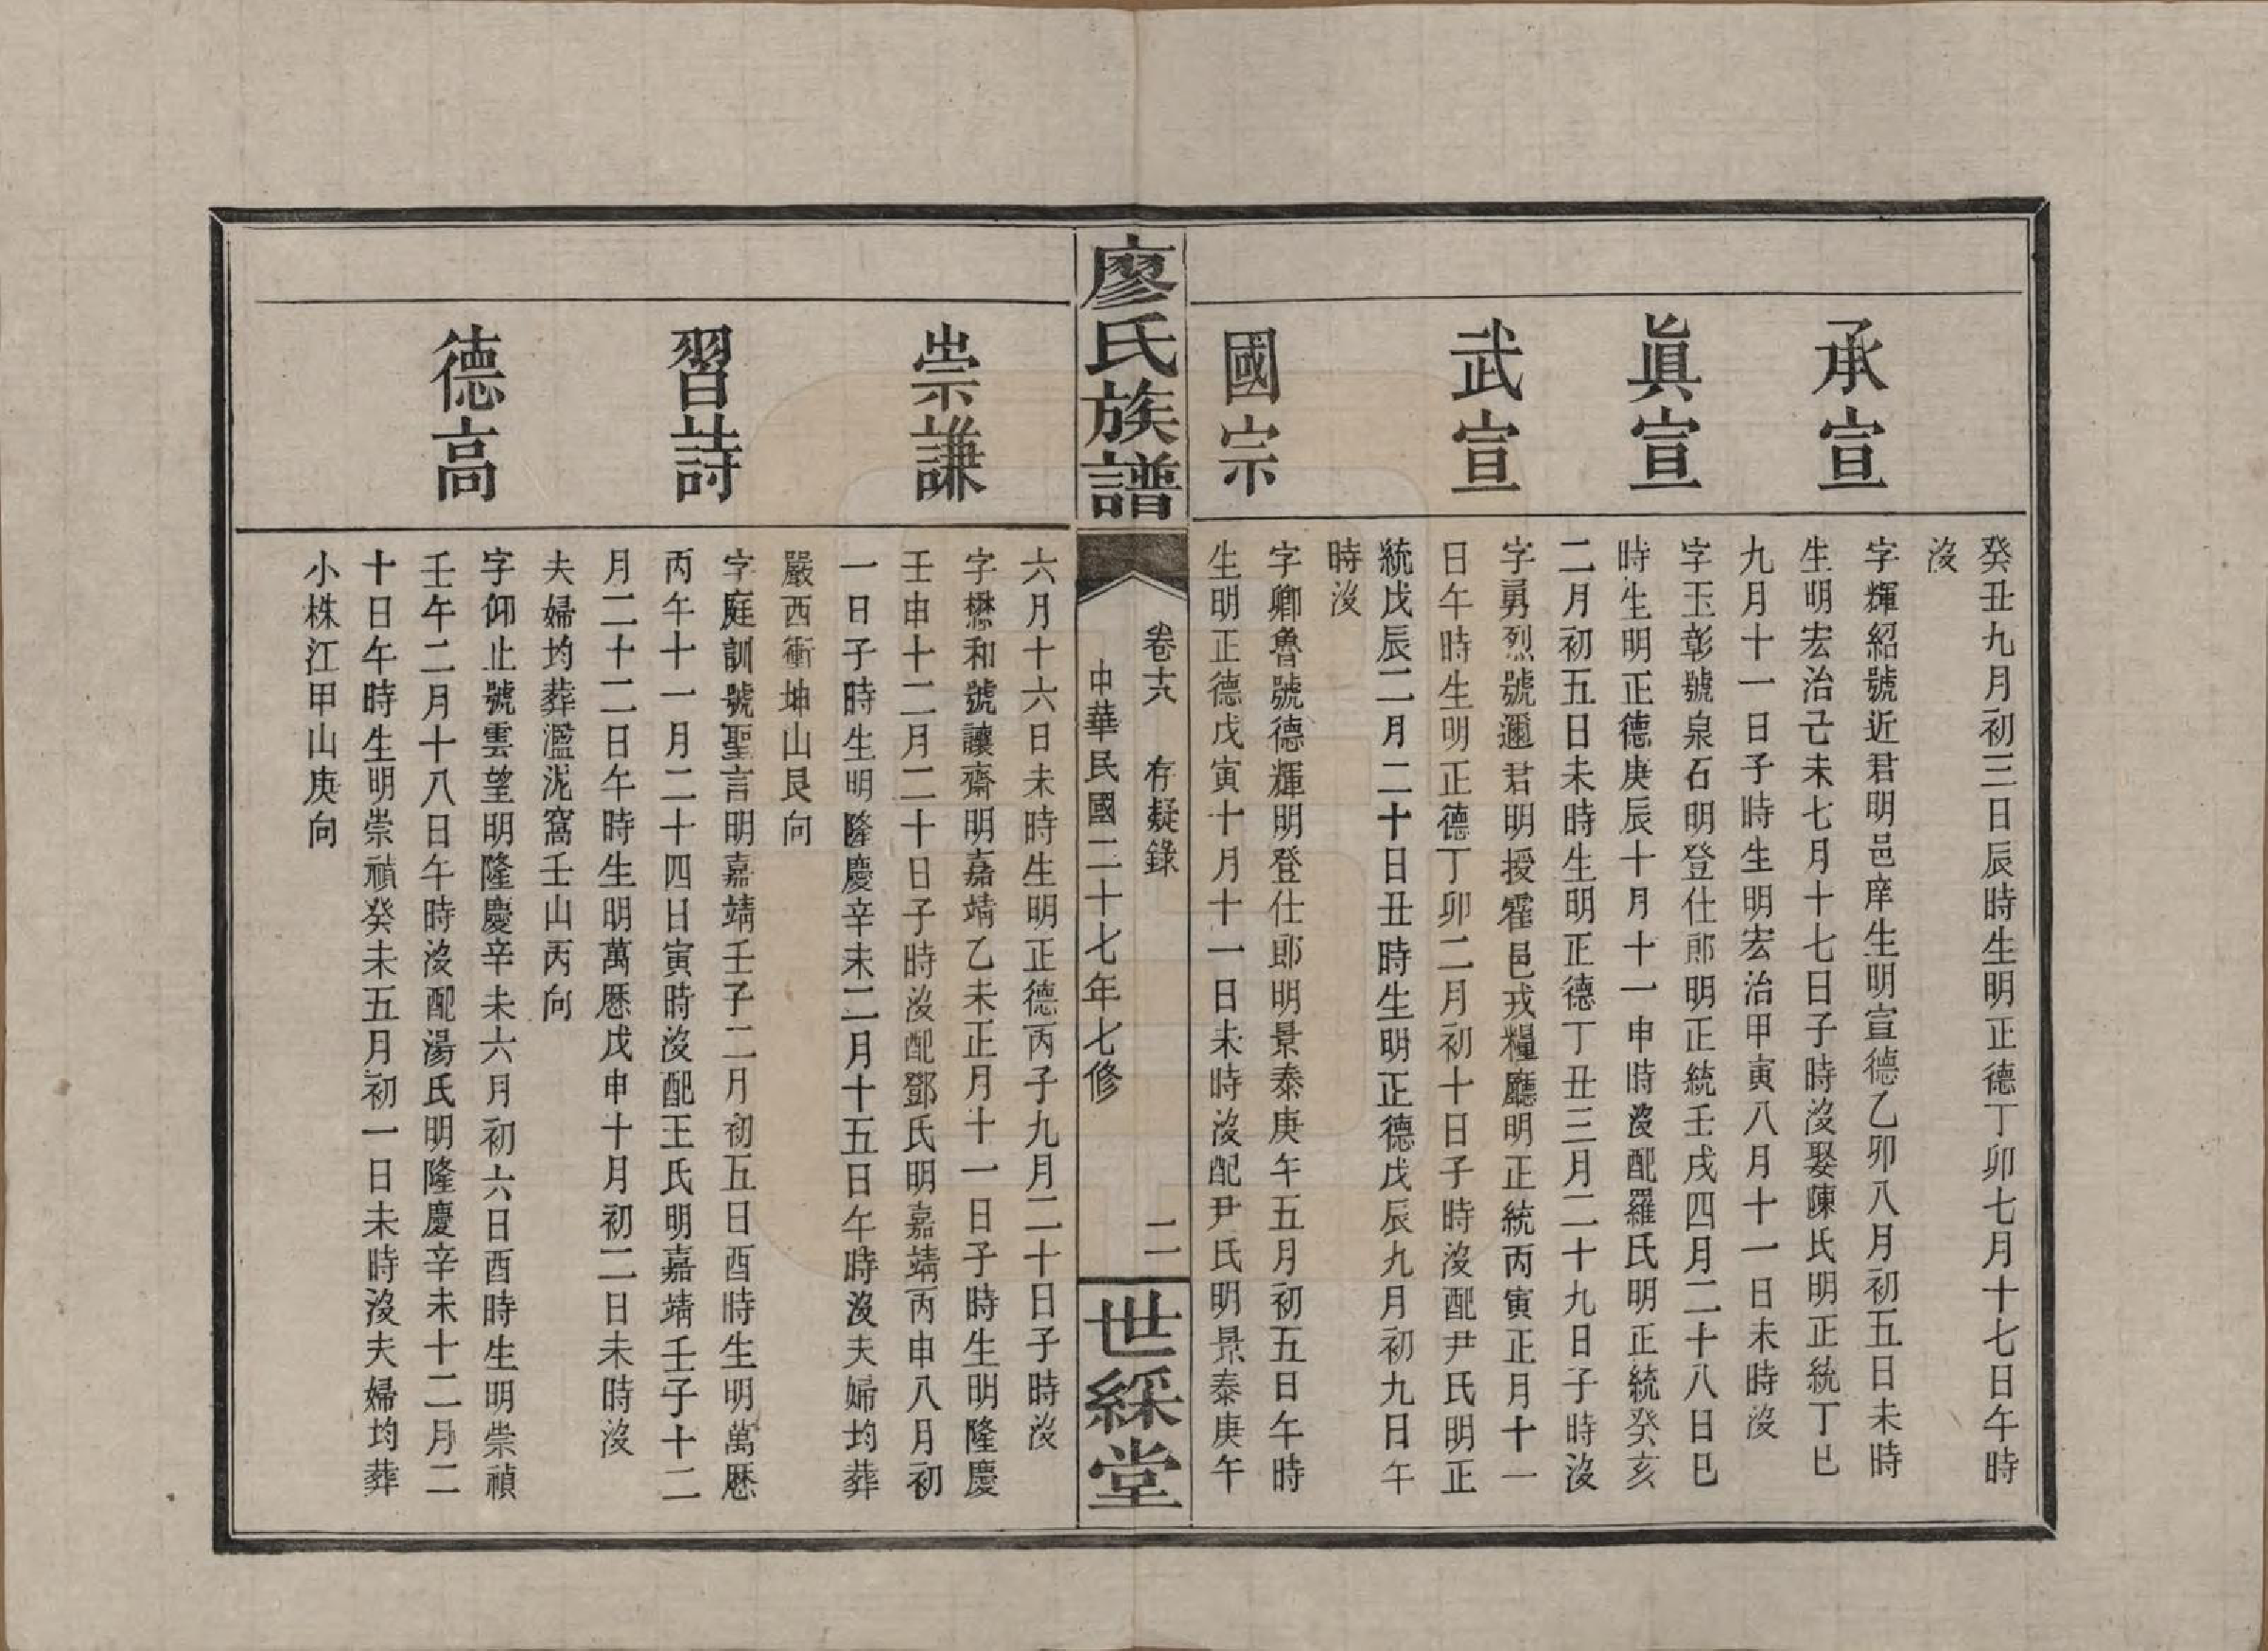 癸丑九月初三日辰時生明正德丁卯七月十七日午時
沒
承宣
字輝紹號近君明邑庠生明宣德乙卯八月初五日未時
生明宏治己未七月十七日子時沒娶陳氏明正統丁巳
九月十一日子時生明宏治甲寅八月十一日未時沒
眞宣
字玉彰號泉石明登仕郎明正統壬戌四月二十八日巳
時生明正德庚辰十月十一申時沒配羅氏明正統癸亥
二月初五日未時生明正德丁丑三月二十九日子時沒
武宣
字勇烈號邇君明授霍邑戎糧廳明正統丙寅正月十一
日午時生明正德丁卯二月初十日子時沒配尹氏明正
統戊辰二月二十日丑時生明正德戊辰九月初九日午
時沒
國宗
字卿魯號德輝明登仕郎明景泰庚午五月初五日午時
生明正德戊寅十月十一日未時沒配尹氏明景泰庚午
廖氏族譜
卷十六 存疑錄 二
中華民國二十七年七修
世綵堂
六月十六日未時生明正德丙子九月二十日子時沒
崇謙
字懋和號讓齋明嘉靖乙未正月十一日子時生明隆慶
壬申十二月二十日子時沒配鄧氏明嘉靖丙申八月初
一日子時生明隆慶辛未二月十五日午時沒夫婦均葬
嚴西衝坤山艮向
習詩
字庭訓號聖言明嘉靖壬子二月初五日酉時生明萬歷
丙午十一月二十四日寅時沒配王氏明嘉靖壬子十二
月二十二日午時生明萬歷戊申十月初二日未時沒
夫婦均葬濫泥窩壬山丙向
德高
字仰止號雲望明隆慶辛未六月初六日酉時生明崇禎
壬午二月十八日午時沒配湯氏明隆慶辛未十二月二
十日午時生明崇禎癸未五月初一日未時沒夫婦均葬
小株江甲山庚向